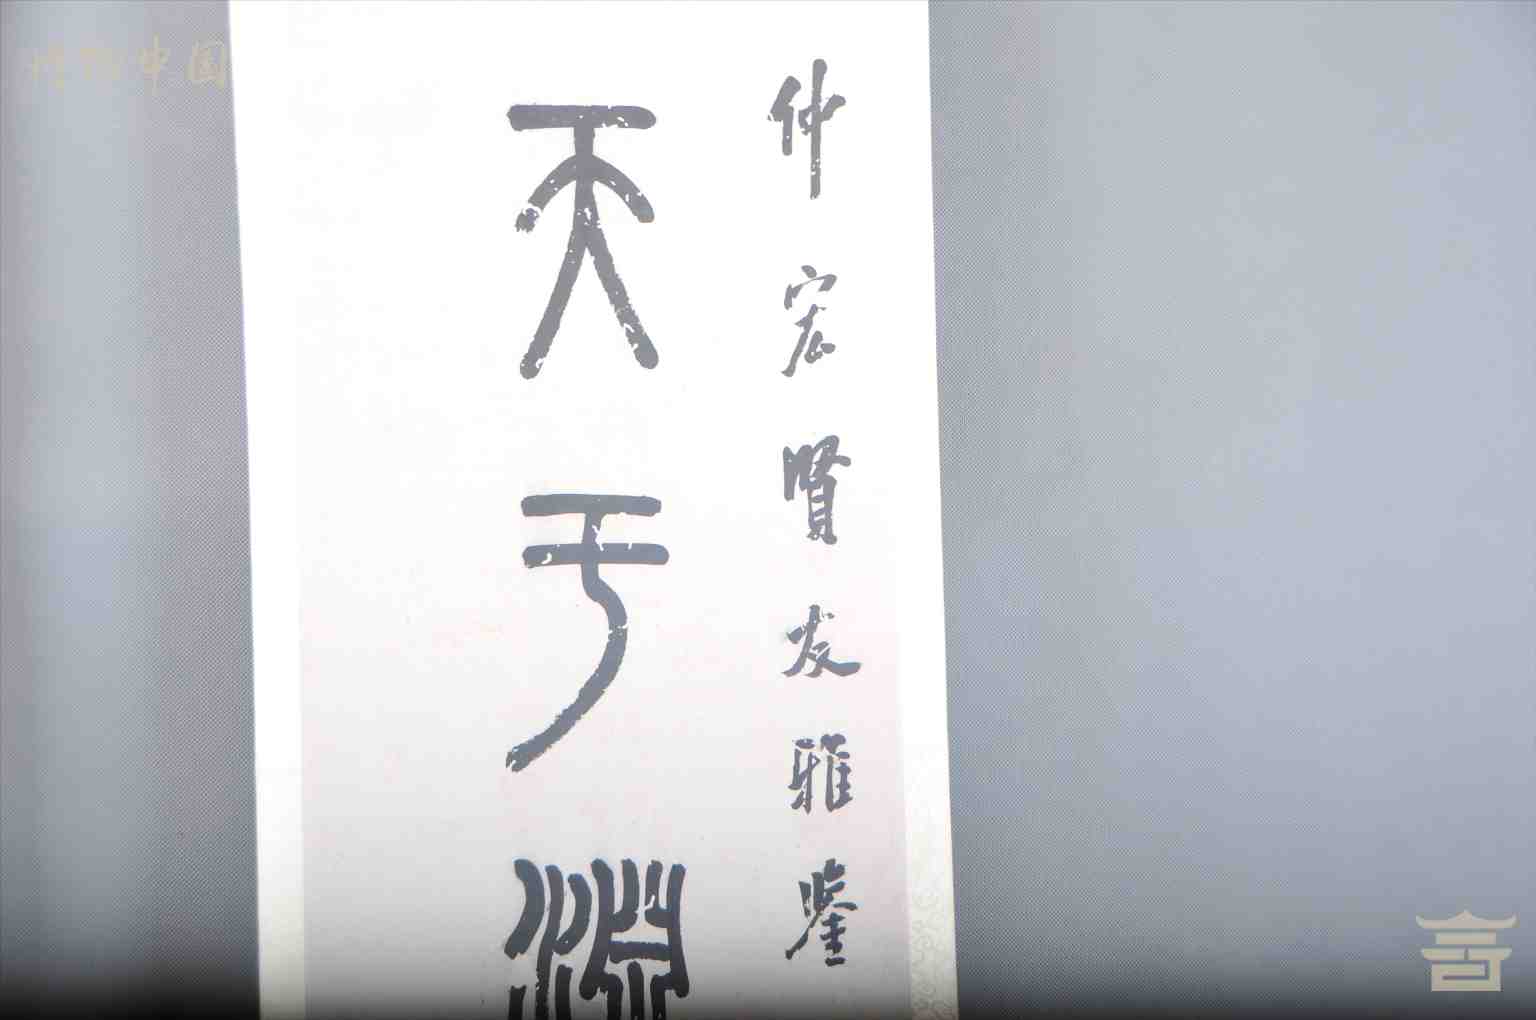 仲宏贤友雅鉴
天于渊
博物中国